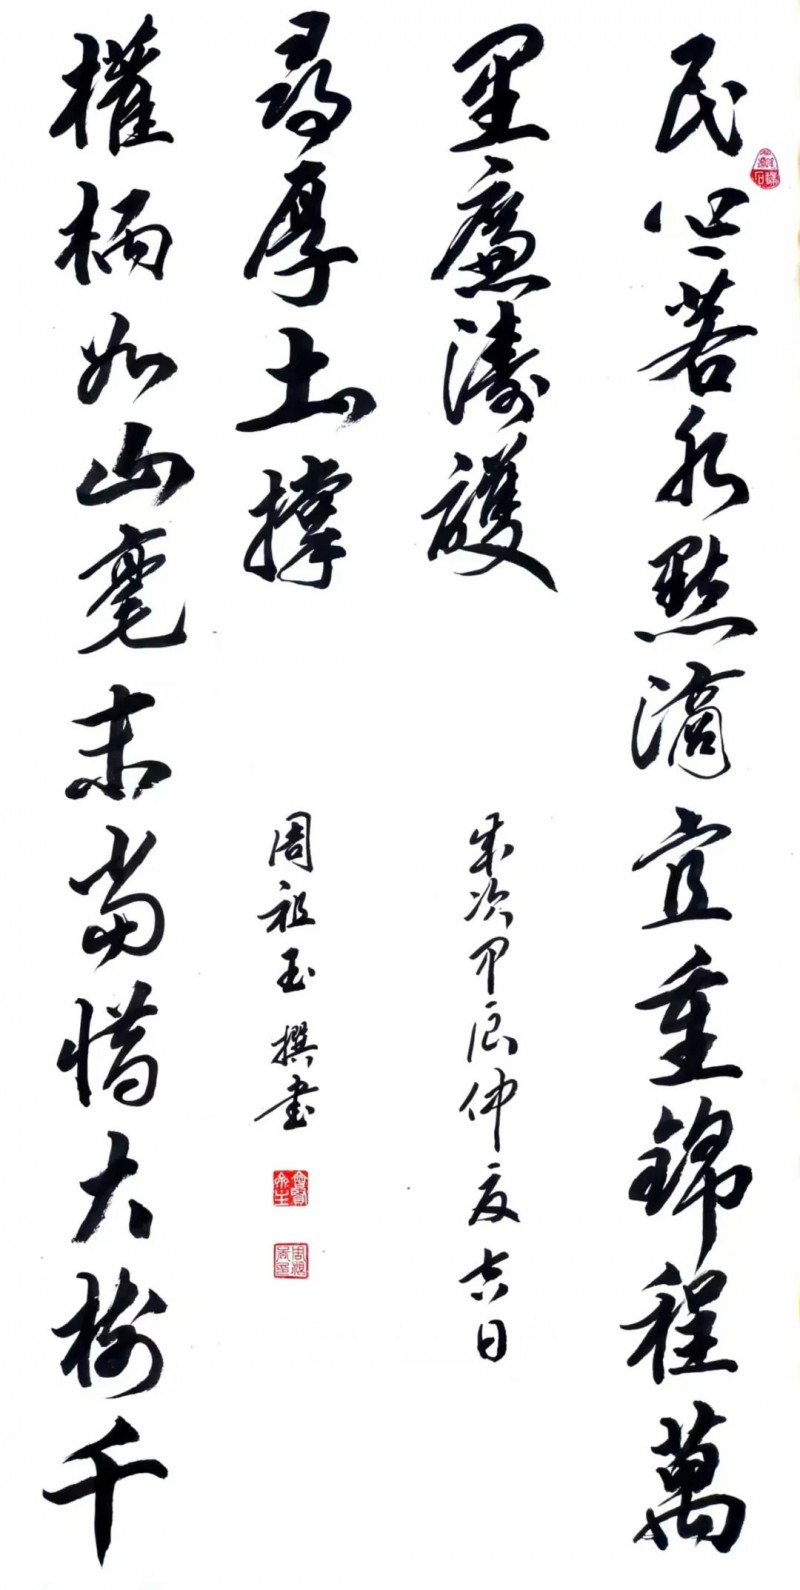 民心若水點滴宜重錦程萬
里廉濤護
權柄如山毫末當惜大樹千
尋厚土撐
歲次甲辰仲夏吉日
周祖玉撰書